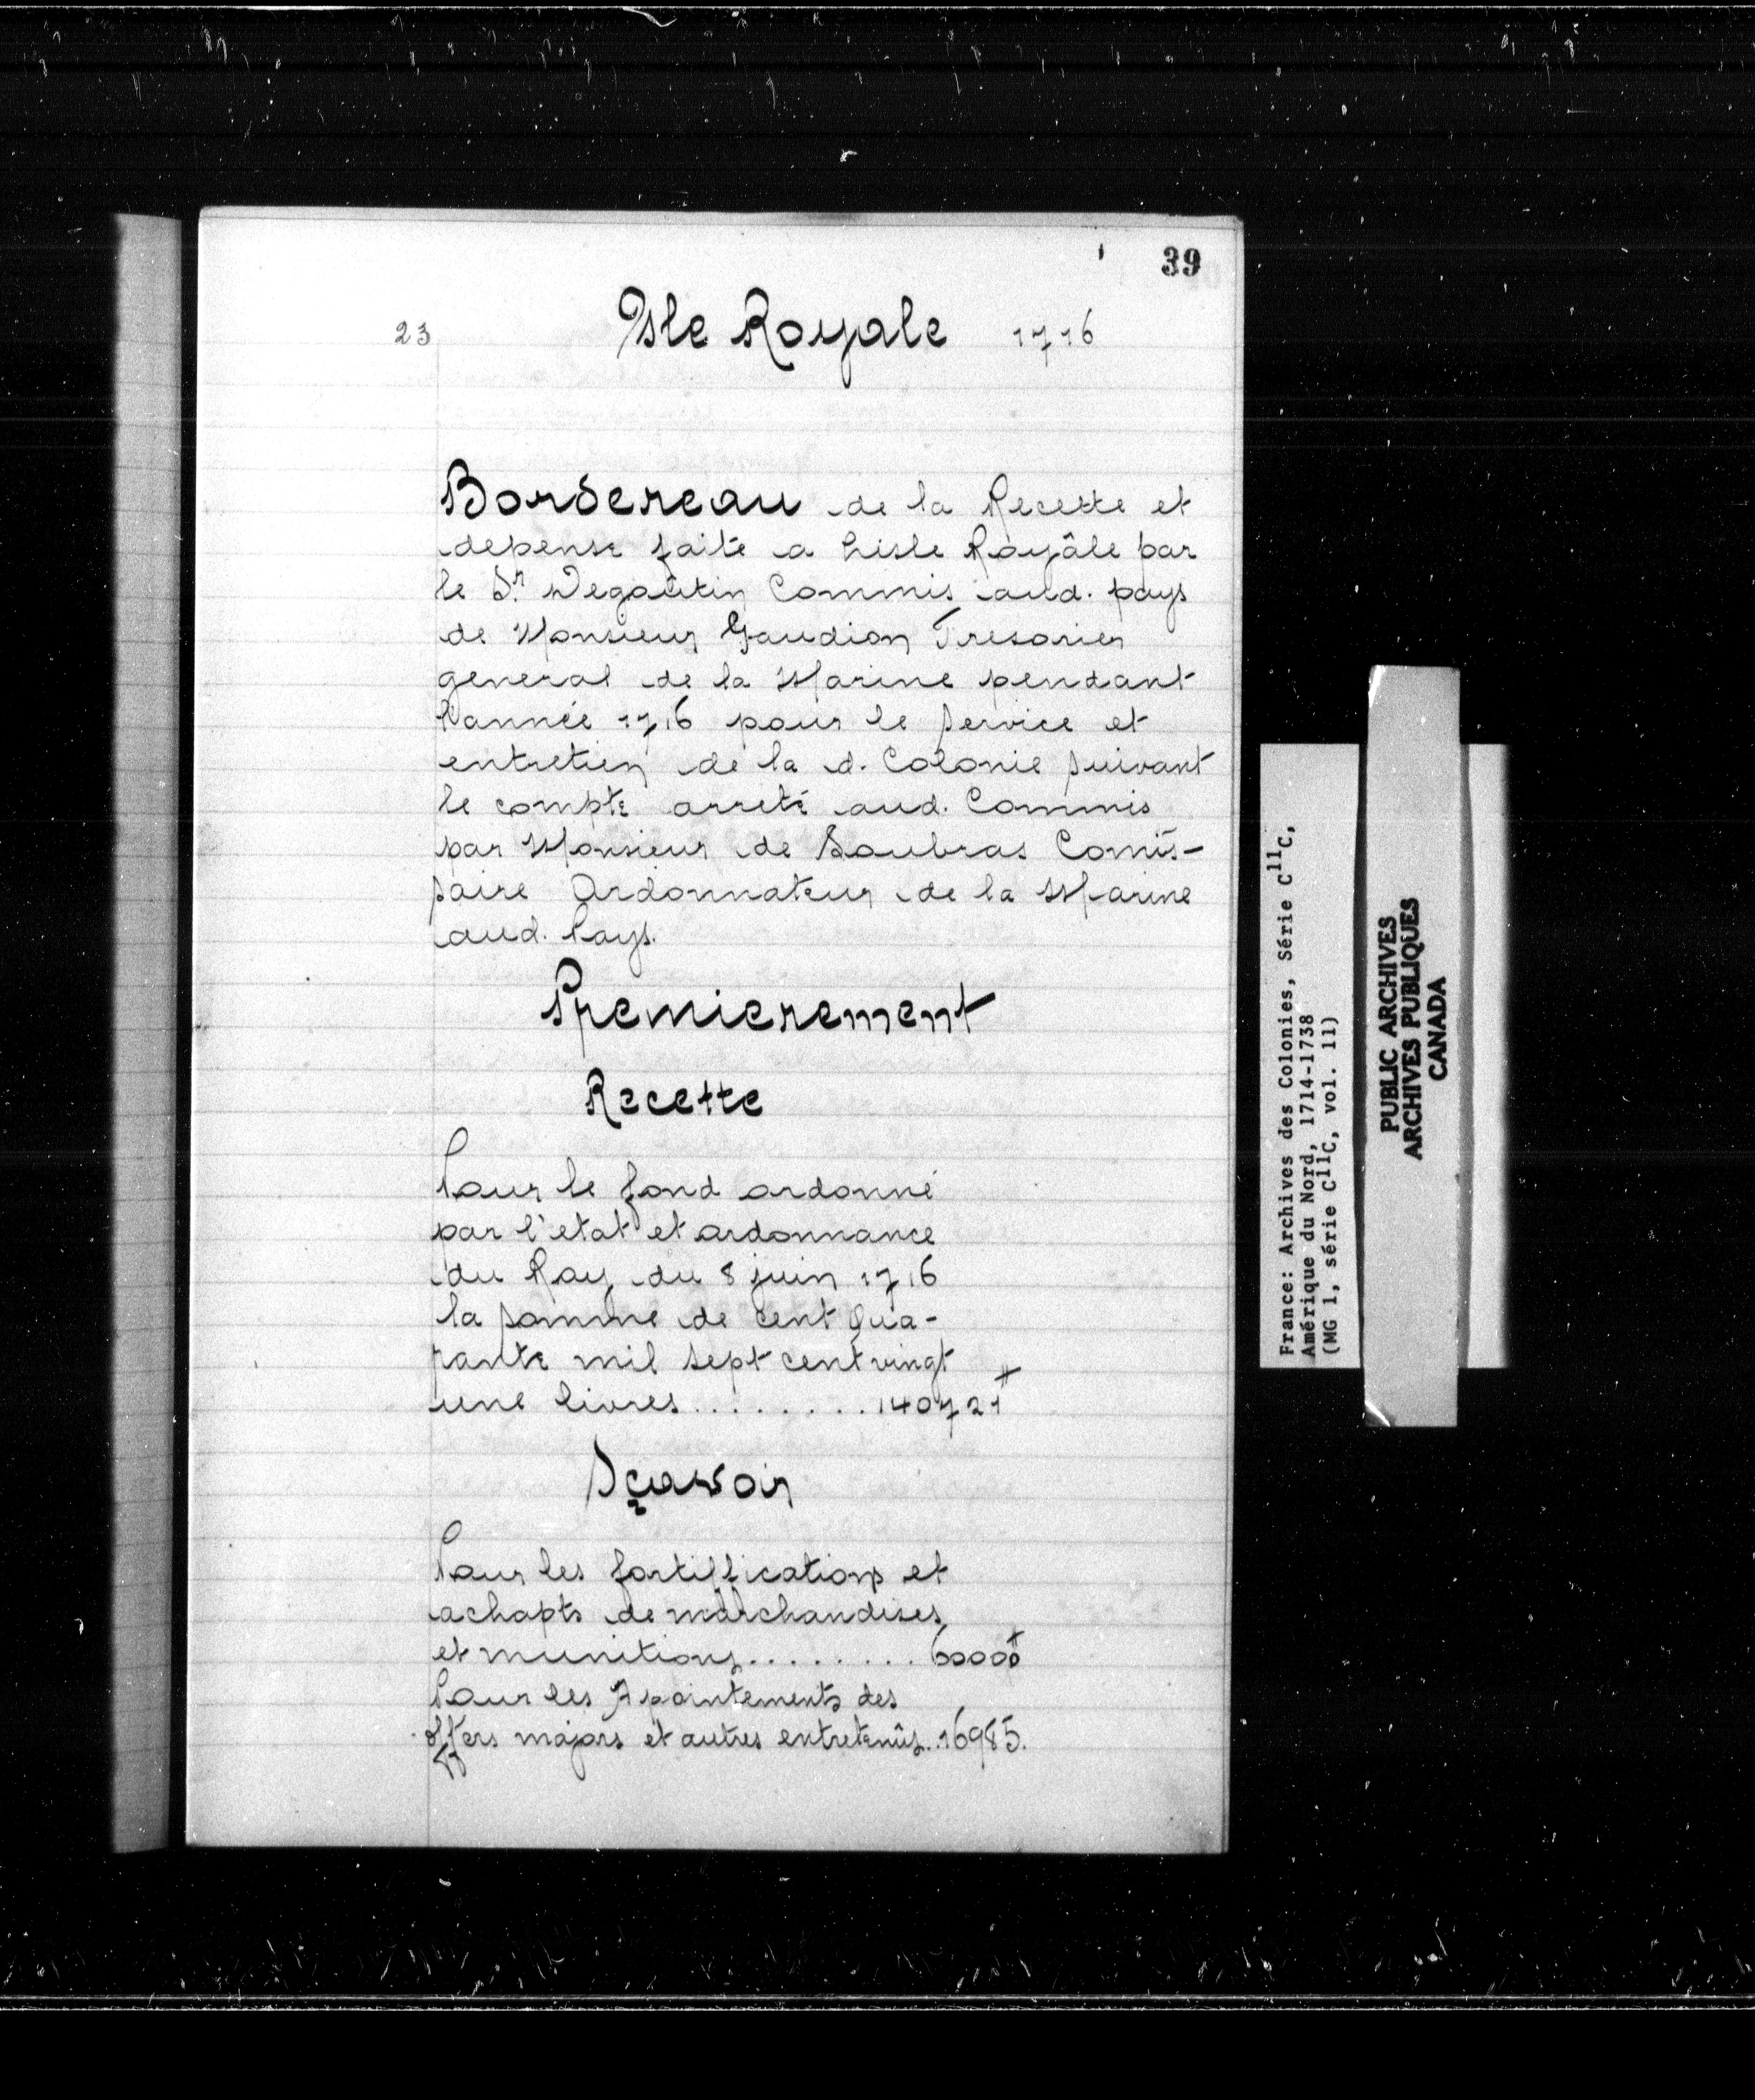 39
23 Isle Royale 1716
Bordereau de la Recette et
depense faite a Lisle Royâle par
le Sr. Degoûtin Commis aud. pays
de Monsieur Gaudion Tresorier
general de la Marine pendant
l'année 1716 pour le service et
entretien de la d. Colonie suivant
le compte arreté aud. Commis
par Monsieur de Soubras Comis-
saire Ordonnateur de la Marine
aud. Pays.
Premierement
Recette
Pour le fond ordonné
par l'etat et ordonnance
du Roy du 8 juin 1716
la somme de cent qua-
rante mil sept cent vingt
une livres........140721#
Sçavoir
Pour les fortiffications et
achapts de marchandises
et munitions........60000#
Pour les Apointements des
offers majors et autres entretenûs..16985.
France: Archives des Colonies, Série C11C,
Amérique du Nord, 1714-1738
(MG 1, série C11C, vol. 11)
PUBLIC ARCHIVES
ARCHIVES PUBLIQUES
CANADA